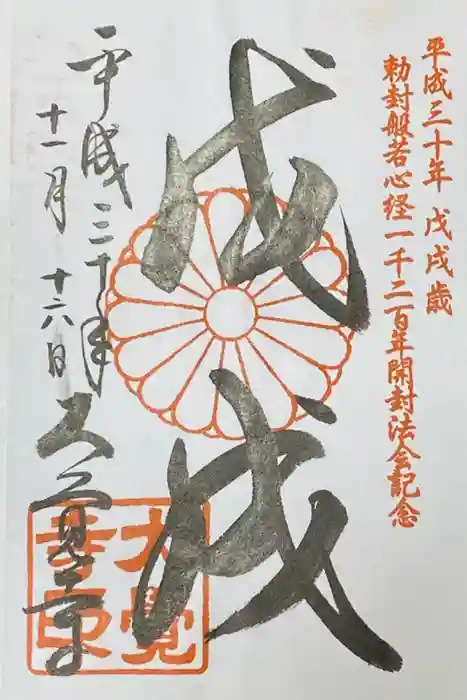 平成三十年 戊戌歳
勅封般若心経一千二百年開封法会記念
戊戌
平成三十年
十一月十六日
大覚寺
大覚寺印